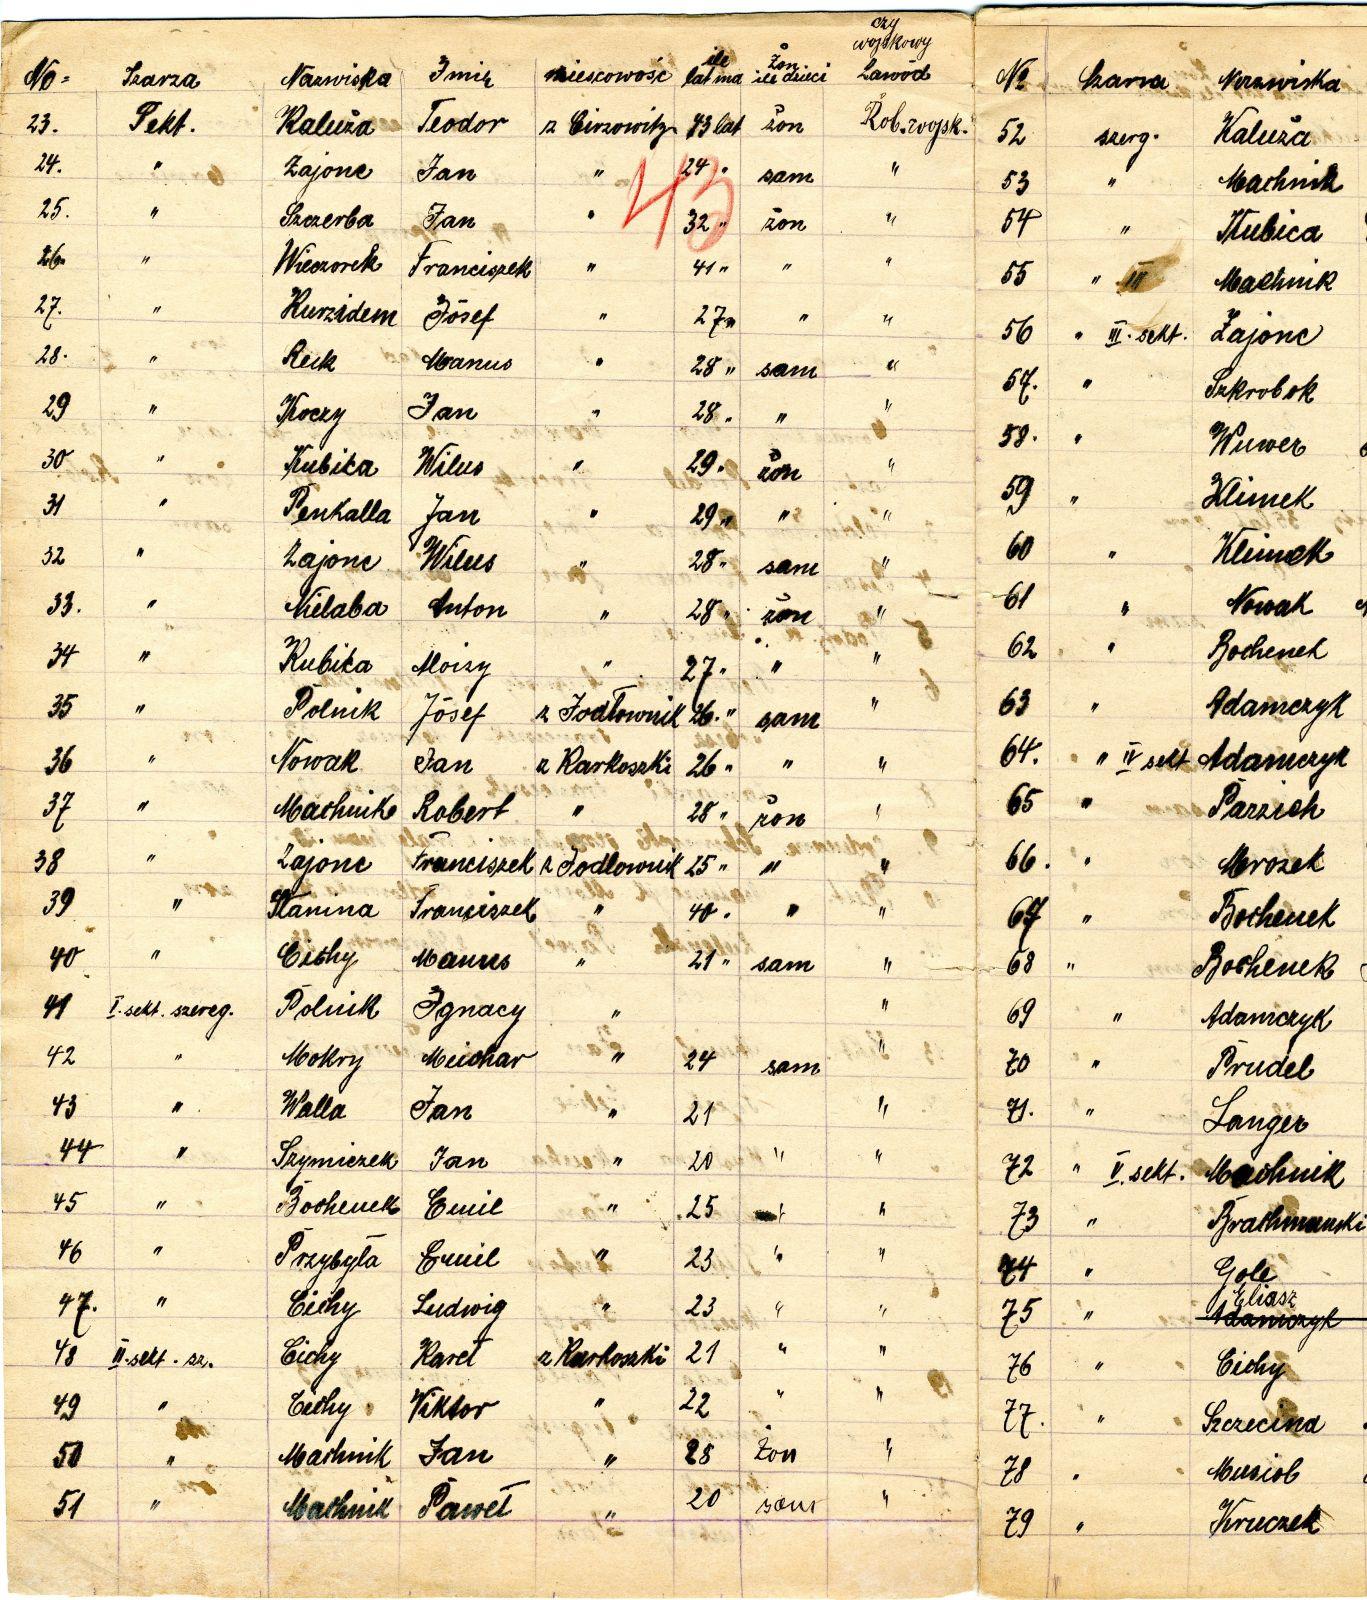 czy
wojskowy
No= Szarża Nazwiska Imię miescowość ile lat ma żon ile dzieci Zawód
23. Pekt. Kaluża Teodor z Cirzowitz 43 lat żon Rob. wojsk.
24. " Zajonc Jan " 24 " sam "
43
25. " Szczerba Jan " 32 " żon "
26. " Wieczorek Franciszek " 41 " " "
27. " Kurzidem Józef " 27 " " "
28. " Reck Manus " 28 " sam "
29 " Koczy Jan " 28 " " "
30 " Kubica Wilus " 29 " żon "
31 " Penkalla Jan " 29 " " "
32 " Zajonc Wilus " 28 " sam "
33. " Nielaba Anton " 28 " żon "
34 " Kubica Aloizy " 27 " " "
35 " Polnik Józef z Jodłownik 26. " sam "
36 " Nowak Jan z Karkoszki 26 " " "
37 " Machnik Robert " 28 " żon "
38 " Zajonc Franciszek z Jodlownik 25 " " "
39 " Stanina Franciszek " 40 " " "
40 " Cichy Manus " 21 " sam "
41 I. sekt. szereg. Polnik Ignacy " "
42 " Mokry Meichar " 24 sam "
43 " Walla Jan " 21 "
44 " Szymiczek Jan " 20 " "
45 " Bochenek Emil " 25 " "
46 " Przybyła Emil " 23 " "
47. " Cichy Ludwig " 23 " "
48 II. sekt. sz. Cichy Kareł z Karkoszki 21 " "
49 " Cichy Viktor " 22 " "
50 " Machnik Jan " 28 żon "
51 " Machnik Paweł " 20 sam "
No Szarża Nazwiska
52 szerg. Kaluża
53 " Machnik
54 " Kubica
55 " III Machnik
56 " III. sekt. Zajonc
57. " Szkrobok
58. " Wuwer
59 " Klimek
60 " Klimek
61 " Nowak
62 " Bochenek
63 " Adamczyk
64. " IV sekt Adamczyk
65 " Parzich
66. " Mrozek
67 " Bochenek
68 " Bochenek
69 " Adamczyk
70 " Prudel
71. " Langer
72 " V. sekt. Machnik
73 " Brathmanski
74 " Gole
Eliasz
75 " Adamczyk
76 " Cichy
77. " Szczecina
78 " Musiol
79 " Kruczek